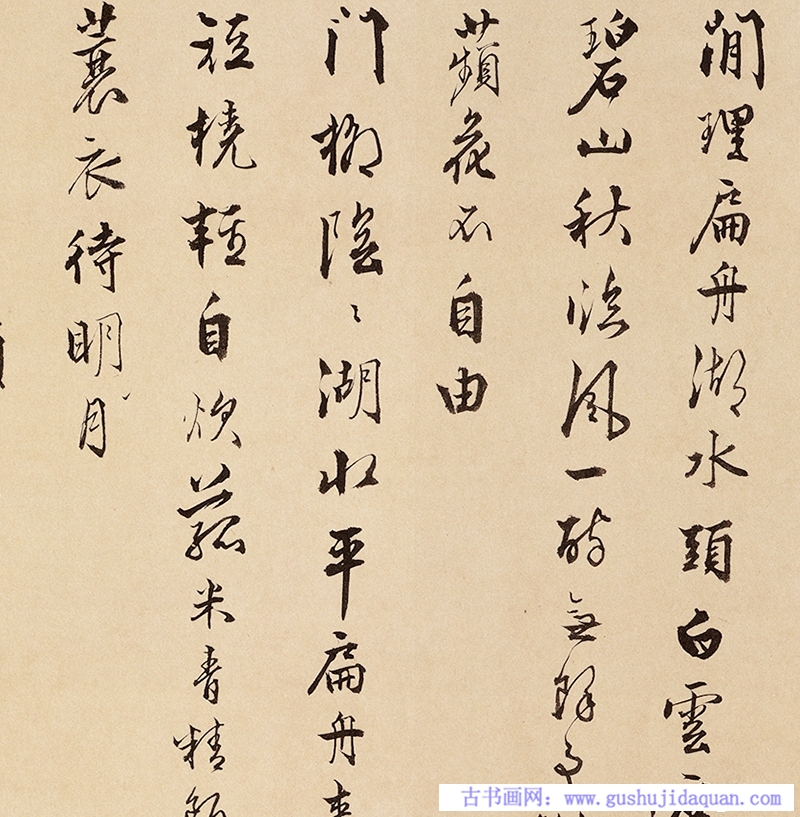 閒理扁舟湖水頭白雲
碧山秋臨風一醉無餘事
蘋花不自由
門柳陰〻湖水平扁舟
短橈輕自炊菰米青精飯
蓑衣待明月
古书画网：www.gushujidaquan.com